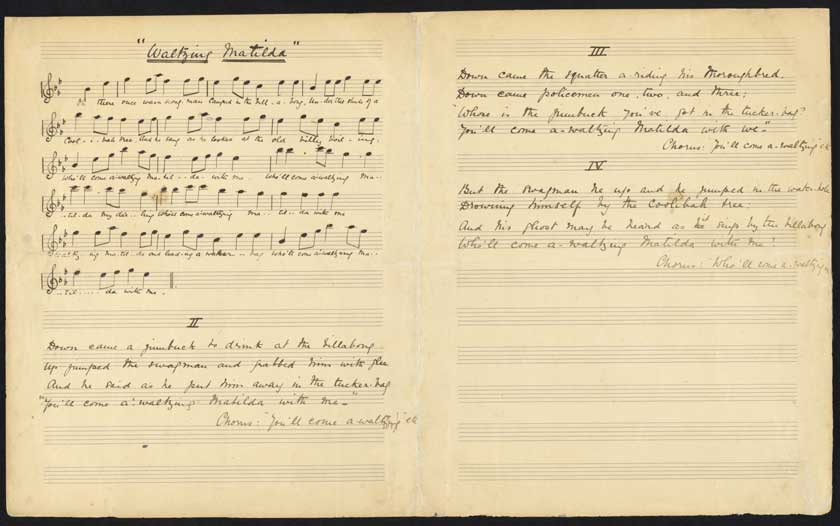 "Waltzing Matilda"
there once was a swag-man camped in the bill-a-bong, Un-der the shade of a
Cool-i-bah tree And he sang as he looked at the old billy boil-ing.
Who'll come a-waltzing Ma-til-da with me. Who'll come a-waltzing Ma-
til-da my dar-ling Who'll come a-waltzing Ma-til-da with me
Waltz-ing Ma-til-da and leading a water-bag Who'll come a-waltzing Ma-
til-da with me.
II
Down came a jumbuck to drink at the billabong
Up jumped the swagman and grabbed him with glee
And he said as he put him away in the tucker-bag
"You'll come a-waltzing Matilda with me-"
Chorus: "You'll come a-waltzing" etc
III
Down came the squatter a-riding his thoroughbred.
Down came policemen one, two, and three;
"Whose is the jumbuck you've got in the tucker-bag?
You'll come a-waltzing Matilda with we-"
Chorus: You'll come a-waltzing etc
IV
But the swagman he up and he jumped in the water-hole
Drowning himself by the Coolibah tree;
And his ghost may be heard as it sings by the billabong
Who'll come a-waltzing Matilda with me?
Chorus: "Who'll come a-waltzing